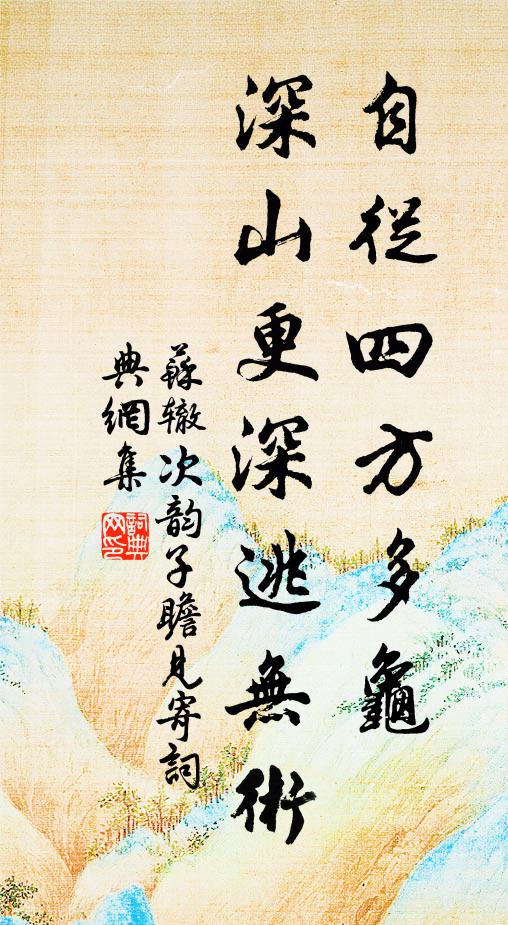 自從四方多龜
深山更深逃無術
蘇辙次韵子瞻見寄詞
典網集
詞典
网印